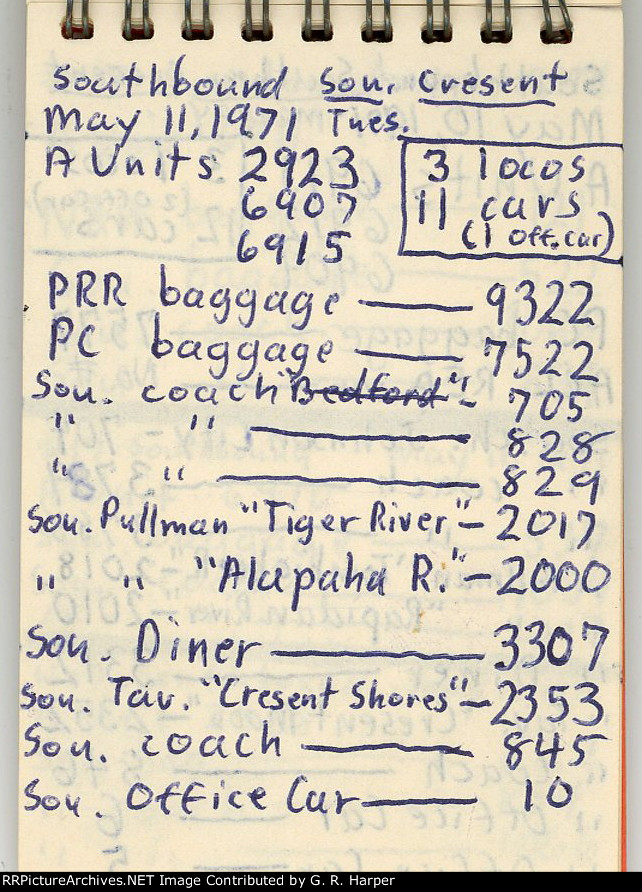 Southbound Sou. Cresent
May 11, 1971 Tues.
A Units 2923
6907
6915
3 locos
11 cars
(1 off. car)
PRR baggage — 9322
PC baggage — 7522
Sou. coach "Bedford" - 705
" " — 828
" " — 829
Sou. Pullman "Tiger River" - 2017
" " "Alapaha R." - 2000
Sou. Diner — 3307
Sou. Tav. "Cresent Shores" - 2353
Sou. coach — 845
Sou. Office Car — 10
RRPictureArchives.NET Image Contributed by G. R. Harper